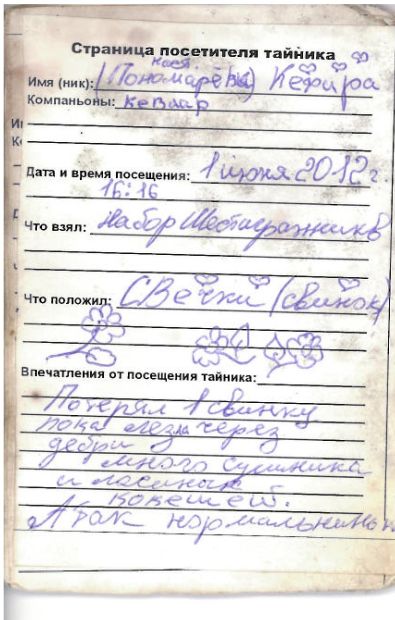 Страница посетителя тайника
Наст.
Имя (ник): (Пономарёв(ы)) Кефира
Компаньоны: Кевлар
Дата и время посещения: 1 июня 2012 г.
16:16
Что взял: Набор Шестигранников
Что положил: СВечки (свинок)
Впечатления от посещения тайника:
Потерял 1 свинку
пока лезла через
дебри
много сушняка
и
А так нормальненько